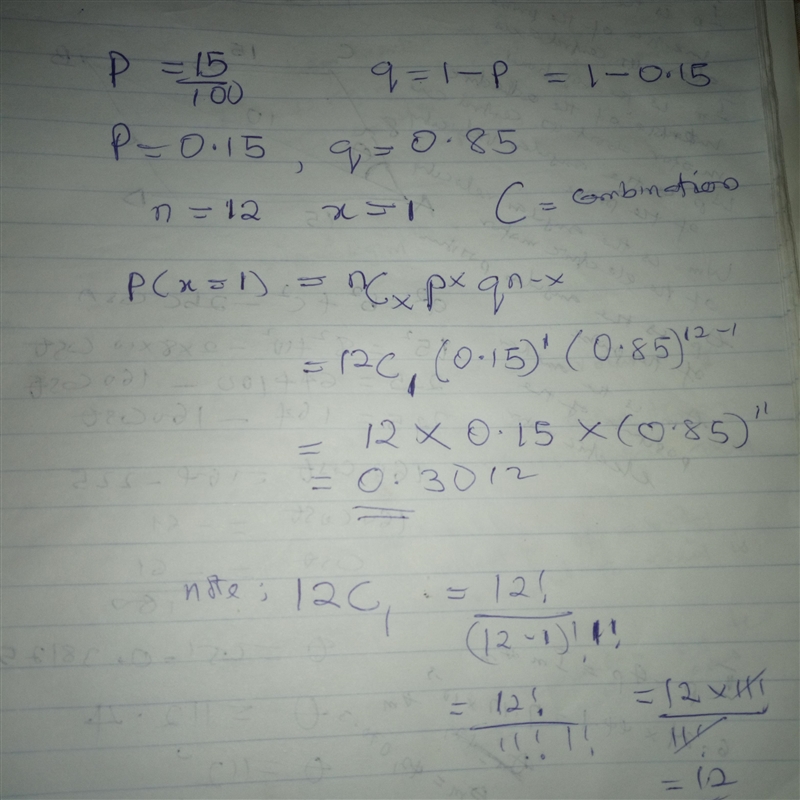 P = 15/100 q = 1 - P = 1 - 0.15
P = 0.15, q = 0.85
n = 12 x = 1 C = combination
P(x = 1) = nCx p^x q^n-x
= 12C1 (0.15)^1 (0.85)^12-1
= 12 × 0.15 × (0.85)^11
= 0.3012
note: 12C1 = 12!/(12-1)! 1!
= 12!/11! 1! = 12 × 11!/11!
= 12